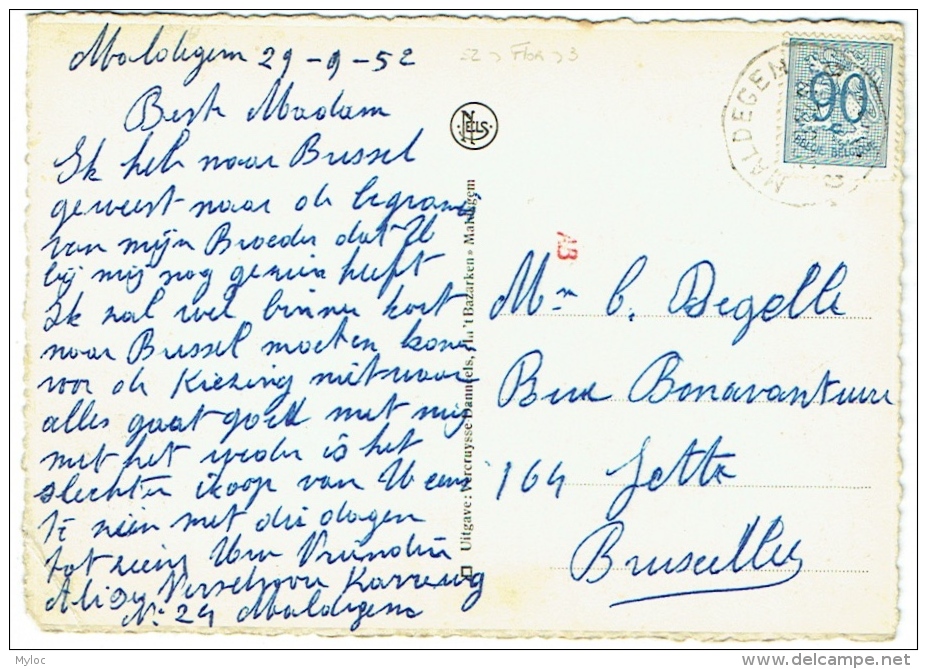 Maldegem 29-9-52
Best Madam
Ik heb naar Brussel
geweest naar de begrave
van mijn Broeder dat U
bij mij nog gezien heeft
Ik zal wel binnen kort
naar Brussel moeten kome
voor de Kiezing niet waar
alles gaat goed met mij
met het weder is het
slechter ikoop van U eens
te zien met die dagen
tot ziens Uw Vrindin
Alida Karreweg
N: 24 Maldegem
22 > Flor > 3
NELS
Uitgave : Vercruysse-Danneels, « In 't Bazarken » Maldegem
A3
MALDEGEM
90
c
BELGIE BELGIQUE
Mm C. Degelle
Bue Bonavantuure
164 Jette
Bruxelles
Myloc
http://www.delcampe.net